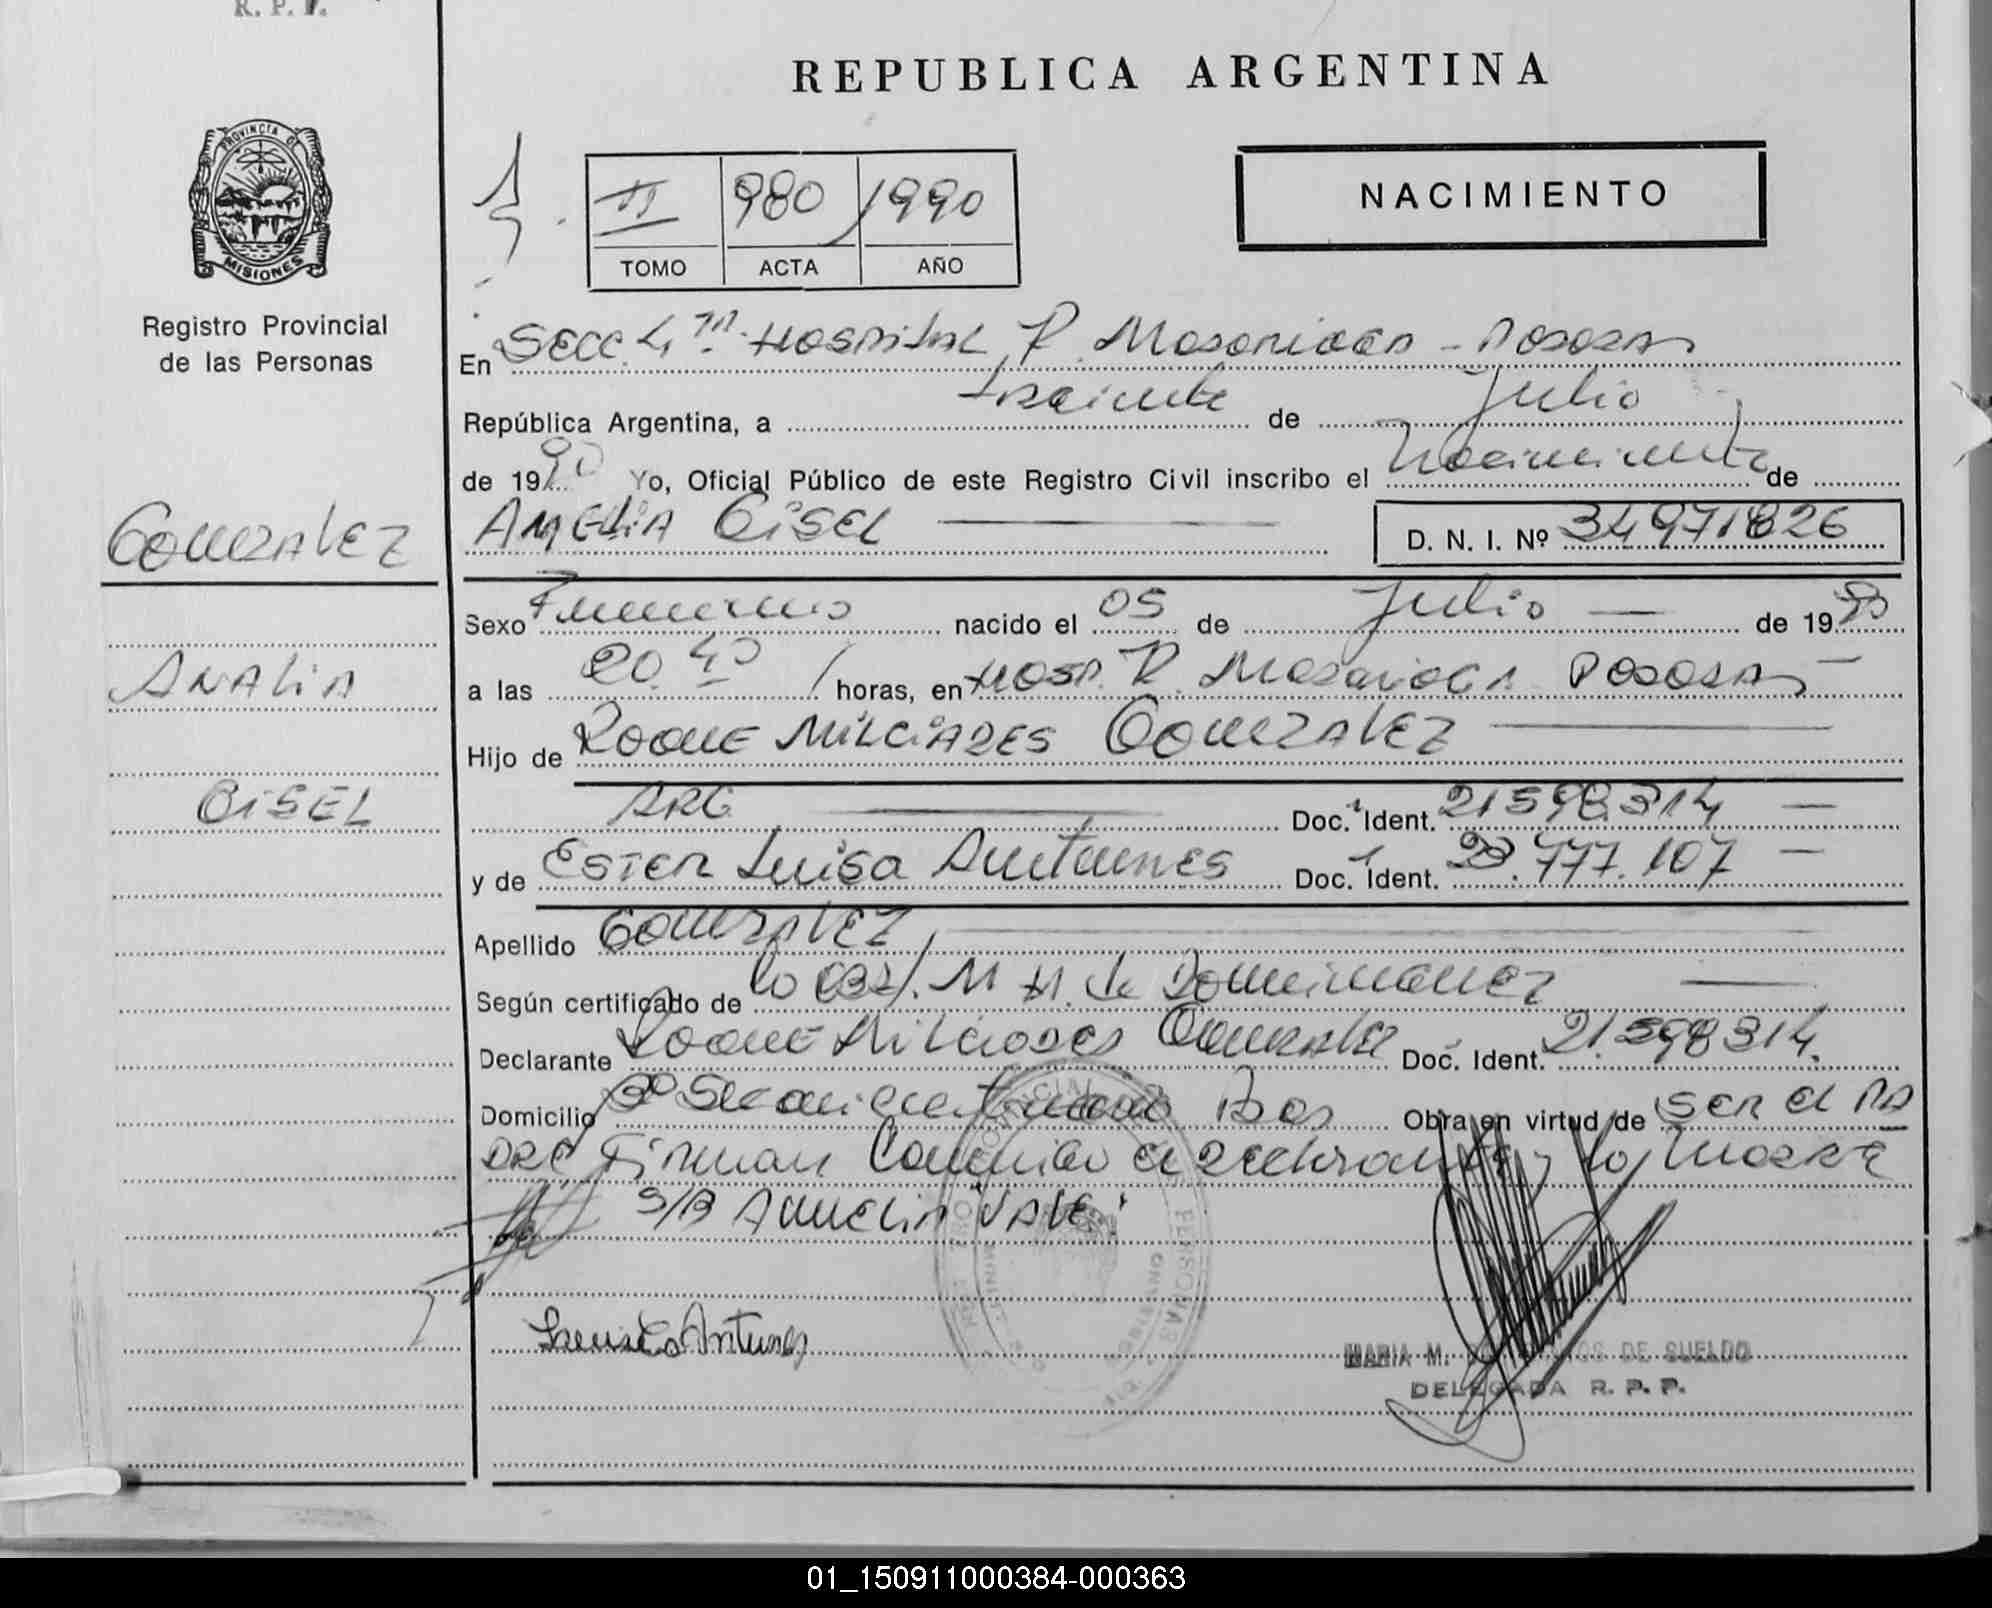 R. P. P.
REPUBLICA ARGENTINA
PROVINCIA DE
MISIONES
Registro Provincial
de las Personas
II 980 1990
TOMO ACTA AÑO
NACIMIENTO
En Secc. 4ta. Hospital R. Madariaga - Posadas
República Argentina, a treinta de Julio
de 1990 Yo, Oficial Público de este Registro Civil inscribo el Nacimiento de
GONZALEZ
AMELIA GISEL
D. N. I. Nº 34971826
Sexo Femenino nacido el 05 de Julio de 1990
ANALIA
a las 20.40 horas, en Hosp. R. Madariaga Posadas
Hijo de ROQUE MILCIADES GONZALEZ
GISEL
ARG Doc. Ident. 21598314
y de ESTER Luisa Antunes Doc. Ident. 23.777.107
Apellido GONZALEZ
Según certificado de M. de Dominguez
Declarante ROQUE Milciades Gonzalez Doc. Ident. 21.598314.
Domicilio Obra en virtud de ser el pa
dre Firman Conmigo el declarante y la madre
S/B Amelia "VALE"
Luisa Antunes
MARIA M. DE SUELDO
DELEGADA R. P. P.
01_150911000384-000363